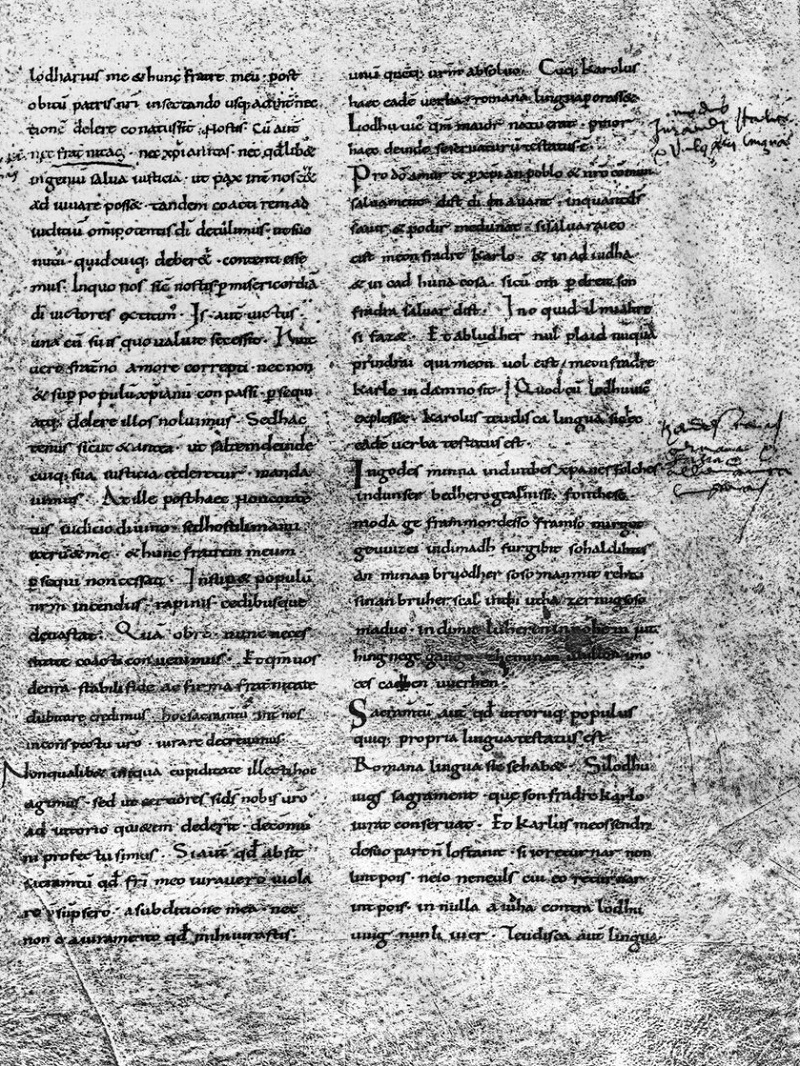 lodharius me & hunc fratrē meū · post
obitū patris nr̄i insectando usq; ad int̄nec
tionē delere conatus sit · nostis · Cū aut̄
nec frat̄nitas · nec xp̄ianitas · nec qd̄lib&
ingeniū salva iusticia · ut pax int̄ nos ēē&
adiuvare poss& · tandem coacti rem ad
iuditiū om̄ipotentis dī detulimus · ut suo
nutu · quid cuiq; deber& · contenti esse
mus · Inquo nos sic̄ nostis p misericordiā
dī victores extitim̄ · Is · aut̄ victus ·
una cū suis quo valuit secessit · Hinc
vero frat̄no amore correpti · nec non
& sup populū xp̄ianū conpassi · psequi
atq; delere illos noluimus · Sed hac
tenus sicut & antea · ut saltem deinde
cuiq; sua iusticia cederetur · manda
vimus · At ille post haec non contē
tus iudicio divino · sed hostili manu
iterū & me · & hunc fratrem meum
psequi non cessat · Insup & populū
nr̄m incendiis · rapinis · cedibusque
devastat · Quā obrē · nunc neces
sitate coacti convenimus · Et qm̄ vos
de nr̄a · stabili fide ac firma frat̄nitate
dubitare credimus · hoc sacramtū int̄ nos
in conspectu vr̄o · iurare decrevimus ·
Non qualib& iniqua cupiditate illecti hoc
agimus · sed ut certiores si dī nobis vr̄o
adiutorio quietem dederit · de cōmu
ni profectu simus · Si aut̄ qd̄ absit
sacramtū qd̄ frī meo iuravero viola
re psūpsero · a subditione mea · nec
non & a iuramento qd̄ mihi iurastis ·
unū quēq; vr̄m absolvo · Cūq; karolus
haec eadē verba · romana lingua porass& ·
Lodhuvic̄ qm̄ maior natu erat · prior
haec deinde se servaturū testatus ē ·
Pro dō amur & p xp̄ian poblo & nr̄o cōmun
salvament · dist di in avant · inquantdī
savir & podir me dunat · si salvaraieo
cist meon fradre karlo · & in aiudha
& in cad huna cosa · sicū om p dreit son
fradra salvar dist · Ino quid il mialtre
si faz& · Et abludher nul plaid nūquā
prindrai qui meon vol cist · meon fradre
karle in damno sit · Quod cū lodhuvic̄
explesset · karolus teudisca lingua sic̄
eadē verba testatus est ·
Ingodes minna indinthes xp̄anes folches
indunser bedhero gealtnissi · fonthese
moda ge frammordesso framso mirgot
geuuizci indimadh furgibit sohaldihtes
an minan bruodher soso man mit rehtu
sinan bruher scal inthi utha zermigsoso
maduo · indimit luheren in nohein iut
hing nege gango · zheminan uuillon imo
ces cadhen uuerhen ·
Sacramtū aut̄ qd̄ utrorūq; populus
quiq; propria lingua testatus est
Romana lingua sic̄ se hab& · Silodhu
uigs sagrament · que son fradre karlo
iurat conservat · Et karlus meossendra
desuo part n̄ lostanit · si ioreturnar non
lint pois · neio neneuls cui eo returnar
int pois · in nulla aiudha contra lodhu
uuig nunli iuer · Teudisca aut̄ lingua